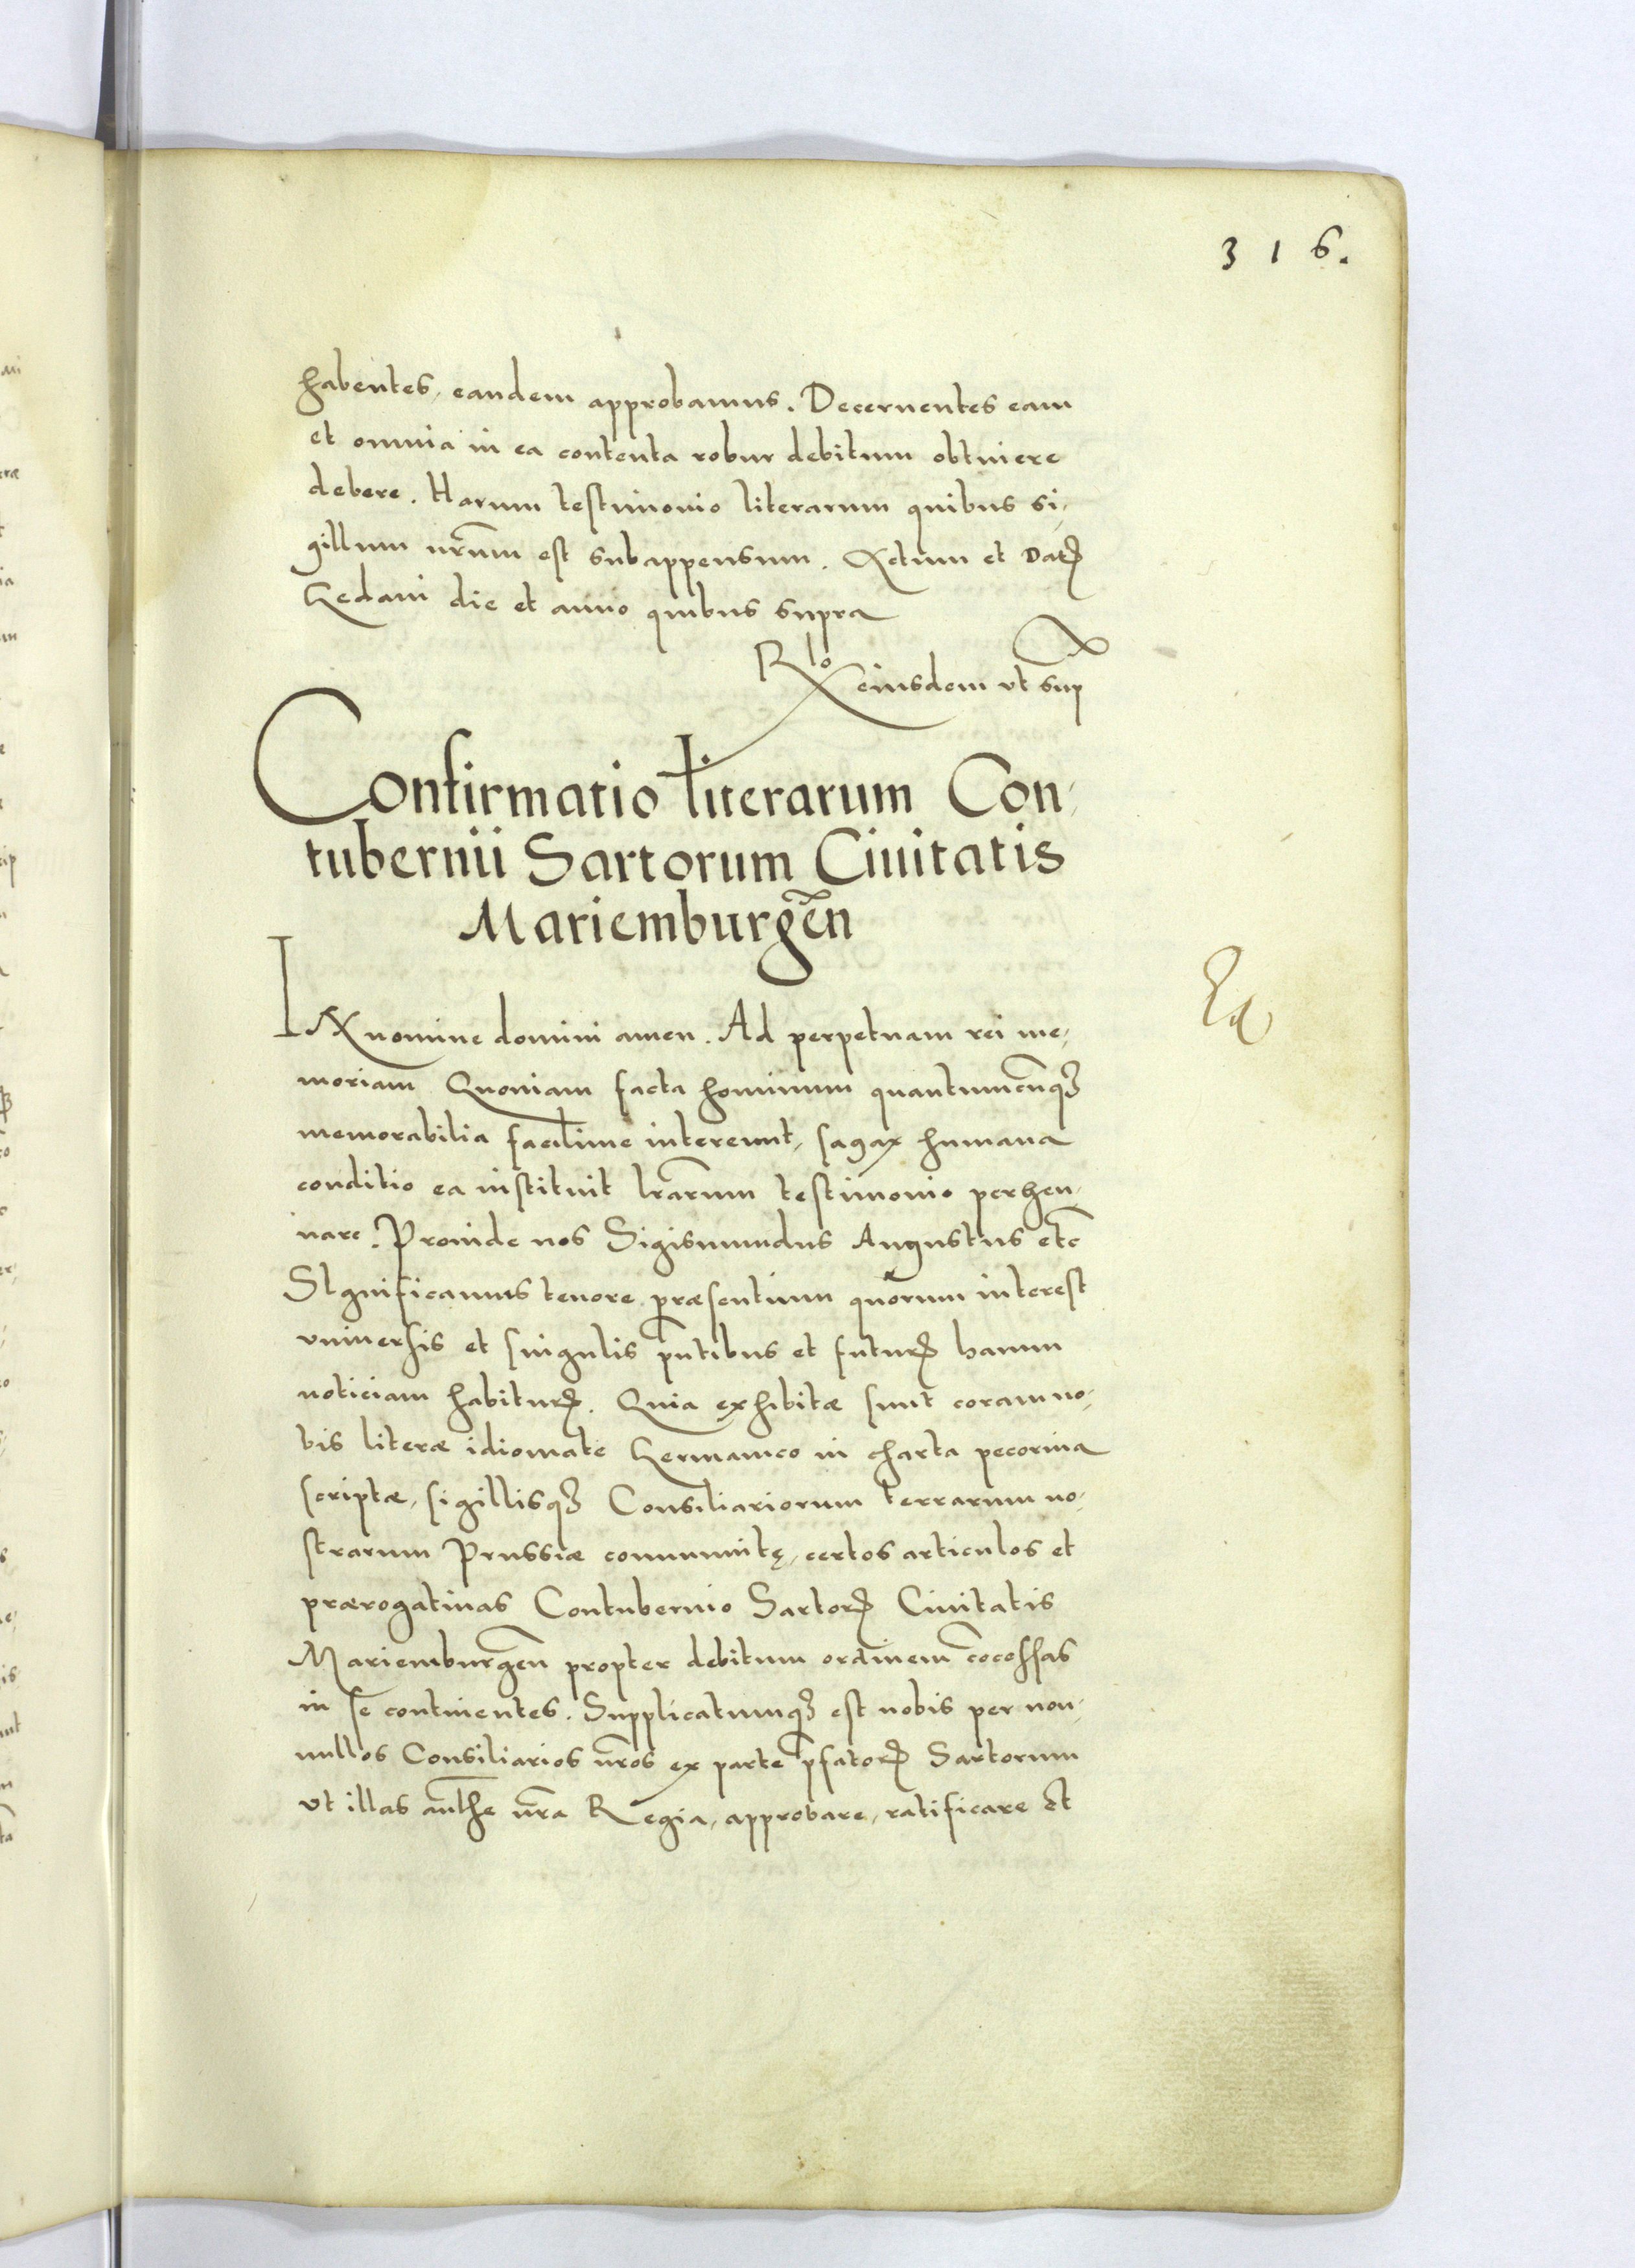 316.
habentes, eandem approbamus. Decernentes eam
et omnia in ea contenta robur debitum obtinere
debere. Harum testimonio literarum quibus si,
gillum nr̃um est subappensum. Actum et Datꝝ
Gedani die et anno quibus supra
Rlo eiusdem vt sup
Confirmatio literarum Con,
tubernii Sartorum Ciuitatis
Mariemburgen̄
IN nomine domini amen. Ad perpetuam rei me,
moriam Quoniam facta hominum quantumcunqꝫ
memorabilia facilime intereunt, sagax humana
conditio ea instituit lr̃arum testimonio perhen,
nare. Proinde nos Sigismundus Augustus etc̃
SIgnificamus tenore præsentium quorum interest
vniuersis et singulis pn̄tibus et futurꝝ harum
noticiam habiturꝝ. Quia exhibitæ sunt coram no,
bis literæ idiomate Germanico in charta pecorina
scriptæ, sigillisqꝫ Consiliariorum terrarum no,
strarum Prussiæ communitę, certos articulos et
prærogatiuas Contubernio Sartorꝝ Ciuitatis
Mariemburgen̄ propter debitum ordinem cōcossas
in se continentes. Supplicatumqꝫ est nobis per non,
nullos Consiliarios nr̃os ex parte p̄fatorꝝ Sartorum
vt illas aut̄he nr̃a Regia, approbare, ratificare et